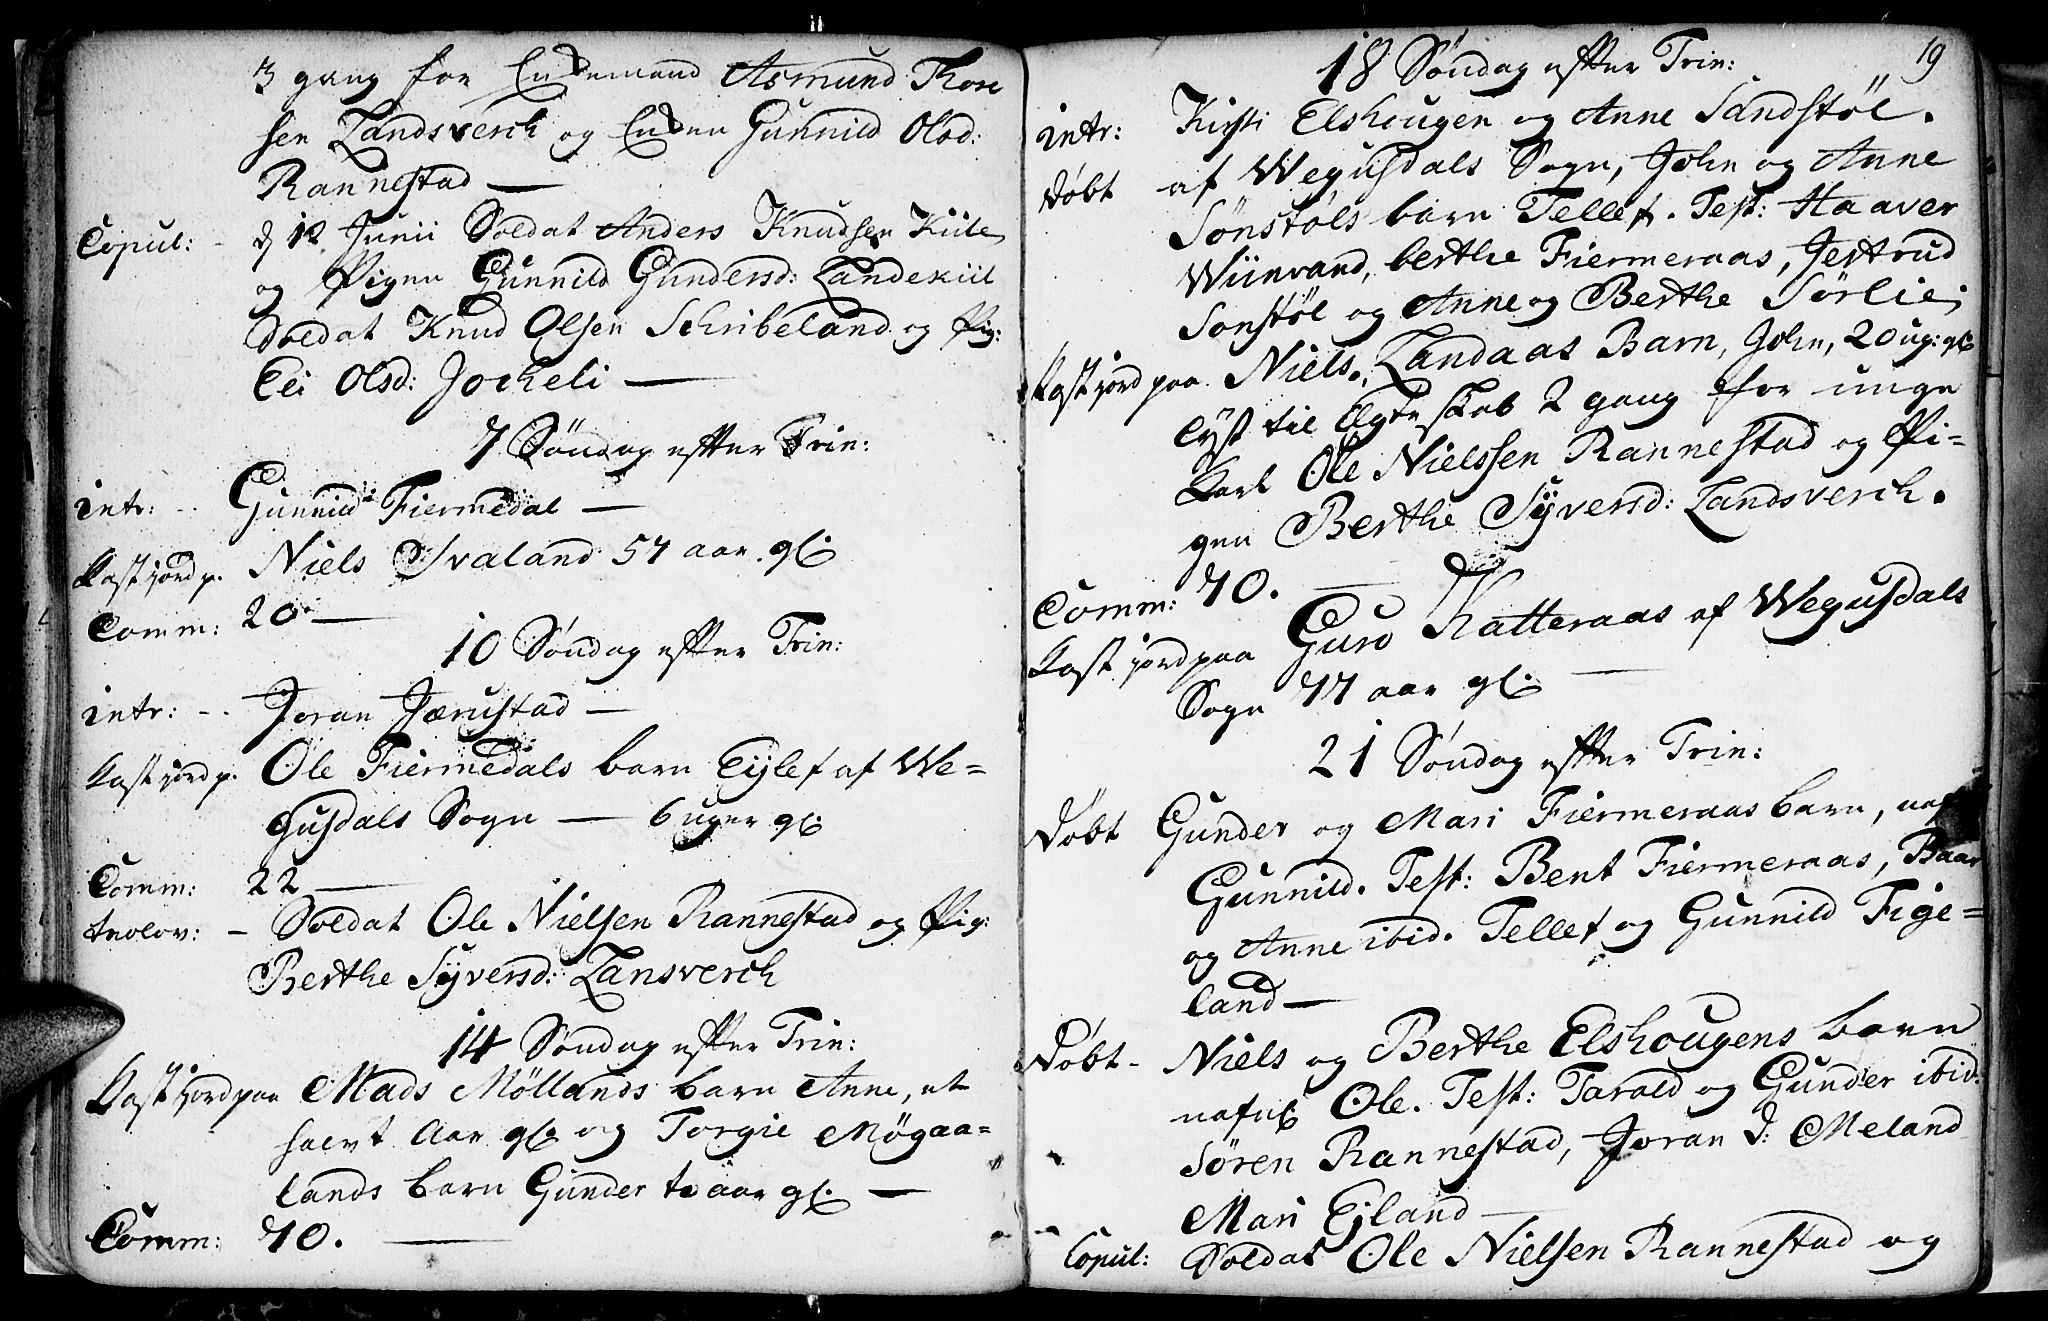 3 gang for Enkemand Asmund Thore
sen Landsverch og Enken Gunnild Olsd:
Rannestad —
Copul: - d 12 Junii Soldat Anders Knudsen Kiile
og Pigen Gunnild Gundersd: Landekiil
Soldat Knud Olsen Schribeland og Pig:
Eli Olsd: Jockeli —
7 Søndag efter Trin:
intr: -- Gunnild Fiermedal —
Kast jord p. Niels Svaland 57 aar gl:
Comm: 20 —
10 Søndag efter Trin:
intr: -- Joran Jærustad —
Kast jord p. Ole Fiermedals barn Eylef af We=
gusdals Sogn — 6 uger gl:
Comm: 22 —
trolov: - Soldat Ole Nielsen Rannestad og Pig:
Berthe Syversd: Lansverch
14 Søndag efter Trin:
Kast jord paa Mads Möllands barn Anne, et
halvt Aar gl: og Torgie Møgaa=
lands barn Gunder to aar gl: —
Comm: 70. —
19
18 Søndag efter Trin:
intr: Kirsti Elshougen og Anne Sandstøl.
Døbt af Wegusdals Sogn, John og Anne
Sønstøls barn Tellef. Test: Haaver
Wiinvand, berthe Fiermeraas, Jertrud
Sonstøl og Anne og Berthe Sørlie;
Kast jord paa Niels Landaas Barn, John, 20 ug: gl:
Lyst til Egteskab 2 gang for unge
Karl Ole Nielssen Rannestad og Pi=
gen Berthe Syversd: Landsverch.
Comm: 70. —
Kast jord paa Guro Katteraas af Wegusdals
Sogn 77 aar gl: —
21 Søndag efter Trin:
Døbt Gunder og Mari Fiermeraas barn,
Gunnild. Test: Bent Fiermeraas, Baar
og Anne ibid. Tellef og Gunnild Fige=
land —
Døbt - Niels og Berthe Elshougens barn
nafnl: Ole. Test: Tarald og Gunder ibid:
Søren Rannestad, Joran d: Meland
Mari Ejland —
Copul: Soldat Ole Nielsen Rannestad og